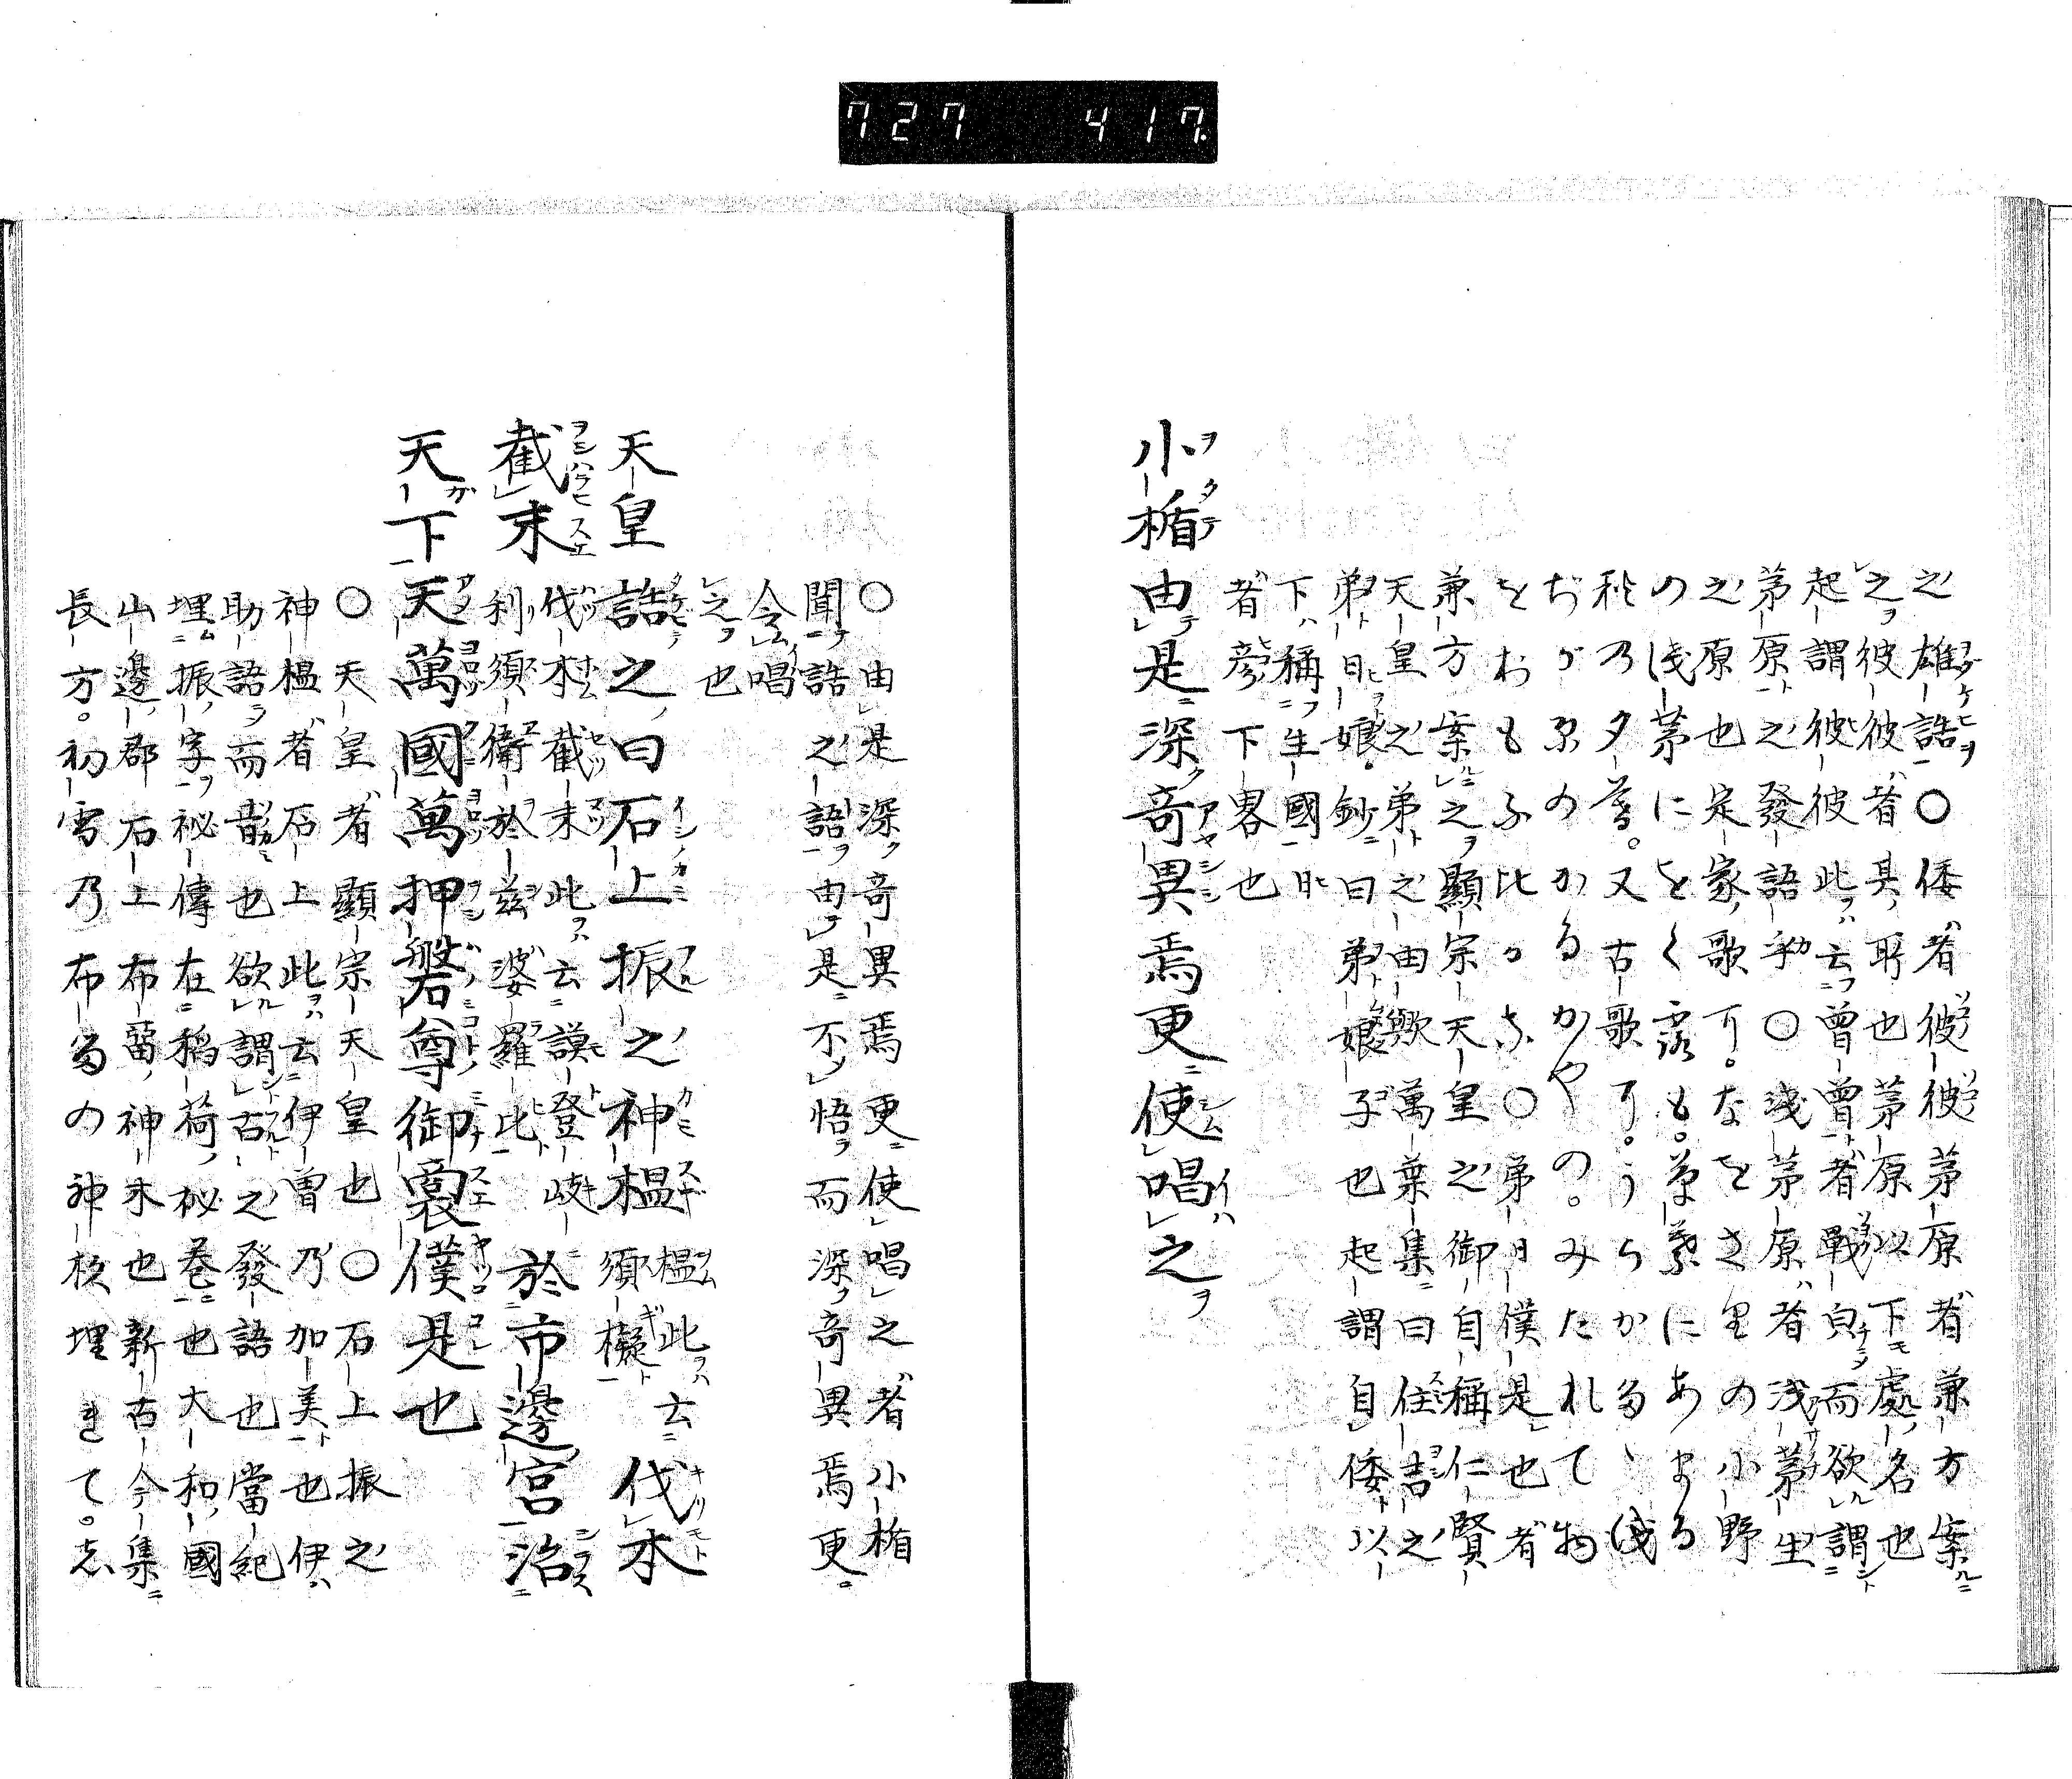 727 417
之雄誥○倭者彼彼茅原者兼方案
之彼彼者其所也茅原以下處名也
起謂彼彼此云曾曾者戰白而欲謂
茅原之發語乎○淺茅原者浅茅生
之原也定家歌可。なをさ里の小野
の浅茅にをく露も。草葉にあまる
秋乃夕暮。又古歌可。うらかる丶浅
ぢが原のかるかやの。みたれて物
をおもふ比かな○弟日僕是也者
兼方案之顯宗天皇之御自稱仁賢
天皇之弟之由歟萬葉集曰住吉之
弟日娘。鈔曰弟娘子也起謂自倭以
下稱生國
者旁下畧也
小楯由是深奇異焉更使唱之
○由是深奇異焉更使唱之者小楯
聞誥之語由是不悟而深奇異焉更。
令唱
之也
天皇誥之曰石上振之神榲榲此云須擬伐木
截末伐木截末此云謨登岐利須衛於茲婆羅比於市邊宮治
天下天萬國萬押磐尊御裔僕是也
○天皇者顯宗天皇也○石上振之
神榲者石上此云伊曾乃加美也伊
助語而韻也欲謂古之發語也當紀
埋振字祕傳在稲荷祕巻也大和國
山邊郡石上布蕾神木也新古今集
長方。初雪乃布るの神杉埋きて。志